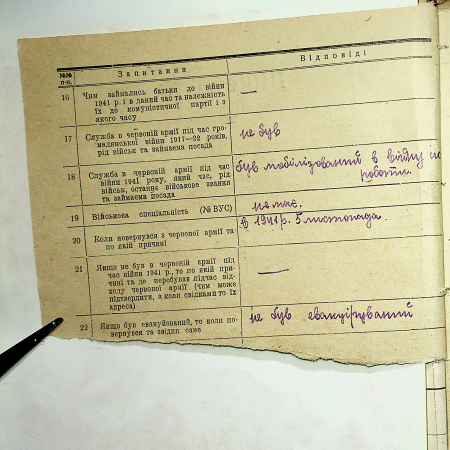 №№ п-п.
Запитання
Відповіді
16 Чим займались батьки до війни
1941 р. і в даний час та належність
їх до комуністичної партії і з
якого часу
—
17 Служба в червоній армії під час гро-
мадянської війни 1917—22 років,
рід військ та займаєма посада
не був
18 Служба в червоній армії під час
війни 1941 року, який час, рід
військ, останнє військове звання
та займаєма посада
був мобілізований в війну на
роботи.
19 Військова спеціальність (№ ВУС)
немає.
20 Коли повернувся з червоної армії та
по якій причині
в 1941 р. 5 листопада.
21 Якщо не був в червоній армії під
час війни 1941 р., то по якій при-
чині та де перебував підчас від-
ходу червоної армії (чим може
підтвердити, а коли свідками то їх
адреса)
—
22 Якщо був евакуйований, то коли по-
вернувся та звідки саме
не був евакуірований